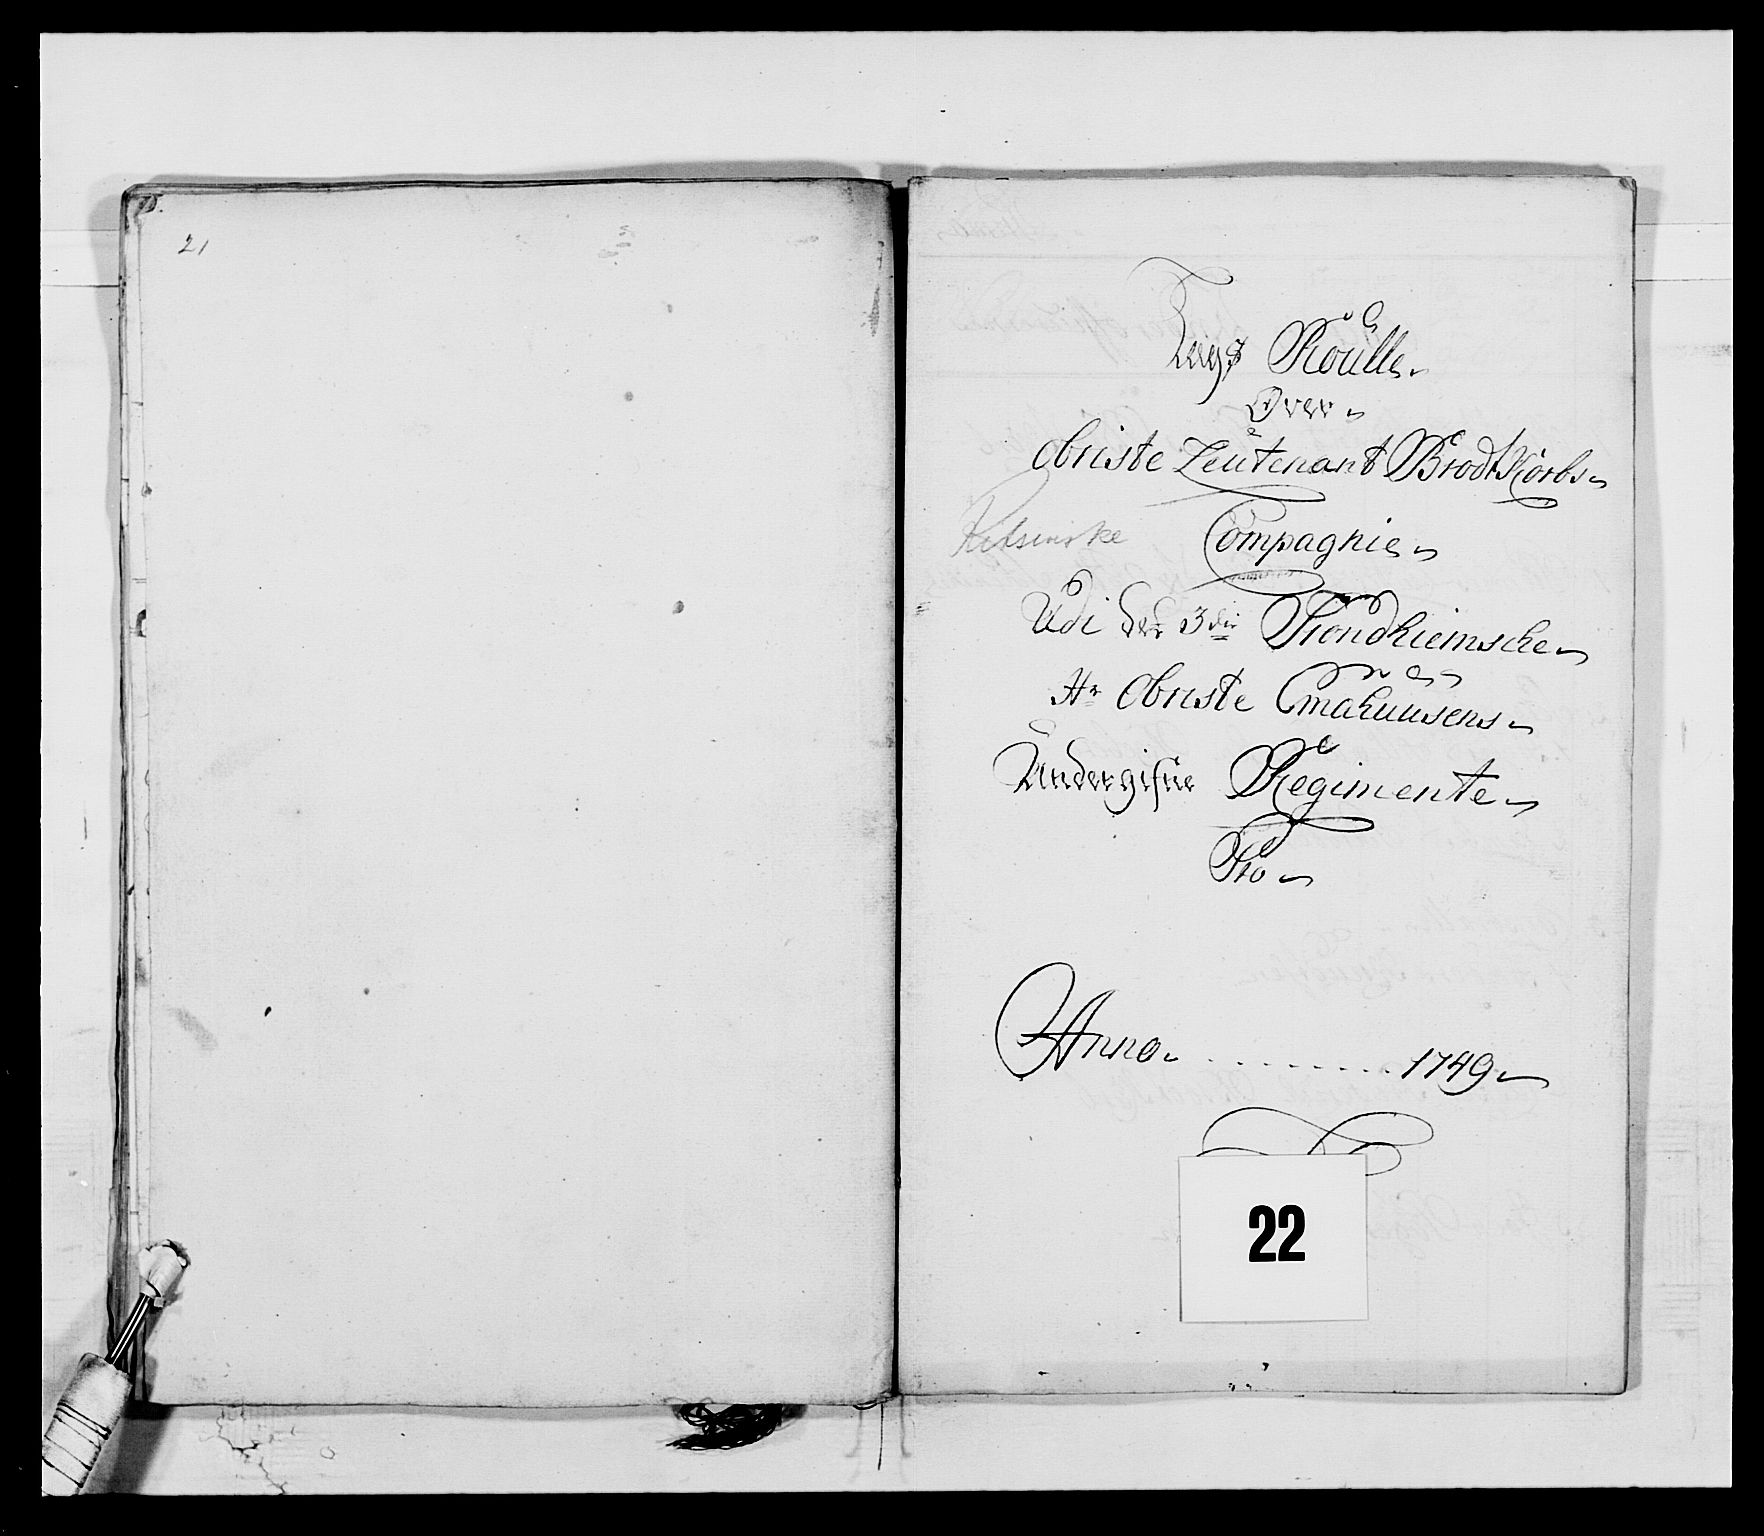 21
Lægs Roulle
Over
Obriste Leutenant BrodtKorbs
Compagnie
Udi det 3die Trondhiemsche
Hr Obriste Emahuusens
Undergifne Regimente
Pro
Anno . . . . . . . . 1749
22